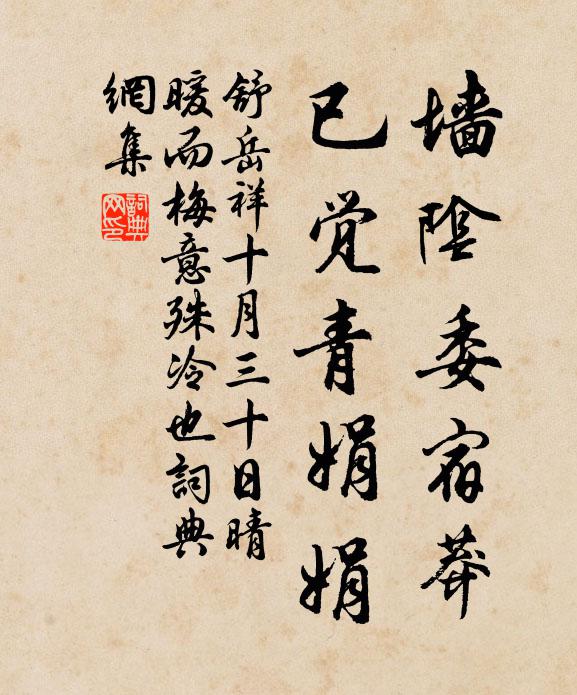 墙阴委宿莽
已觉青娟娟
舒岳祥十月三十日晴
暖而梅意殊冷也詞典
網集
詞典
网印